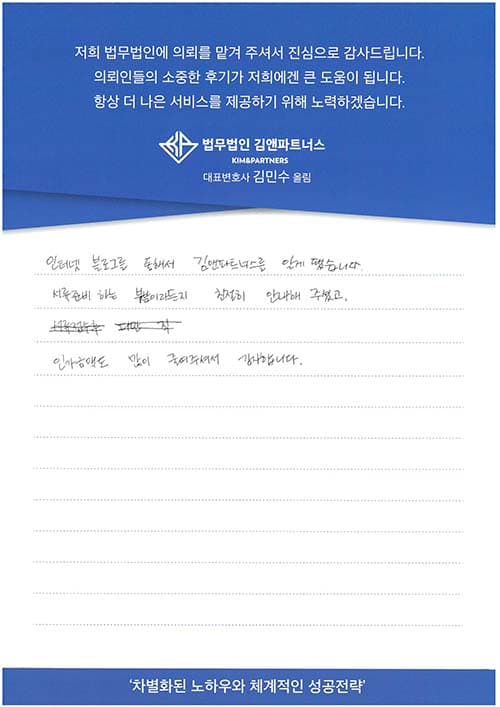 저희 법무법인에 의뢰를 맡겨 주셔서 진심으로 감사드립니다.
의뢰인들의 소중한 후기가 저희에겐 큰 도움이 됩니다.
항상 더 나은 서비스를 제공하기 위해 노력하겠습니다.
법무법인 김앤파트너스
KIM&PARTNERS
대표변호사 김민수 올림
인터넷 블로그를 통해서 김앤파트너스를 알게 됐습니다.
서류준비 하는 부분이라든지 친절히 안내해 주셨고,
인가금액도 많이 줄여주셔서 감사합니다.
‘차별화된 노하우와 체계적인 성공전략’